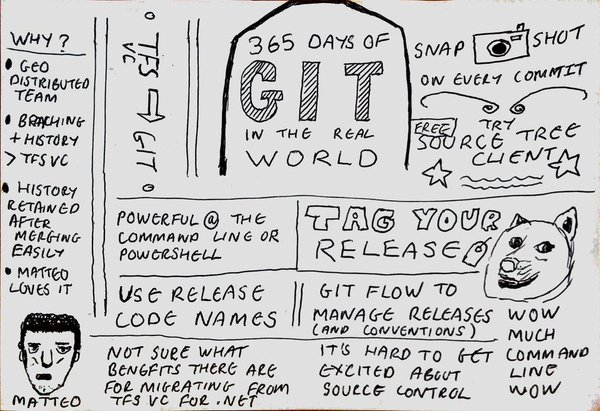 WHY?
• GEO
DISTRIBUTED
TEAM
• BRACHING
+ HISTORY
> TFSVC
• HISTORY
RETAINED
AFTER
MERGING
EASILY
• MATTEO
LOVES IT
MATTEO
• TFS → GIT •
VC
365 DAYS OF
GIT
IN THE REAL
WORLD
SNAP SHOT
ON EVERY COMMIT
FREE TRY
SOURCE TREE
CLIENT
POWERFUL @ THE
COMMAND LINE OR
POWERSHELL
TAG YOUR
RELEASE
USE RELEASE
CODE NAMES
GIT FLOW TO
MANAGE RELEASES
(AND CONVENTIONS)
WOW
MUCH
COMMAND
LINE
WOW
NOT SURE WHAT
BENEFITS THERE ARE
FOR MIGRATING FROM
TFS VC FOR .NET
IT'S HARD TO GET
EXCITED ABOUT
SOURCE CONTROL